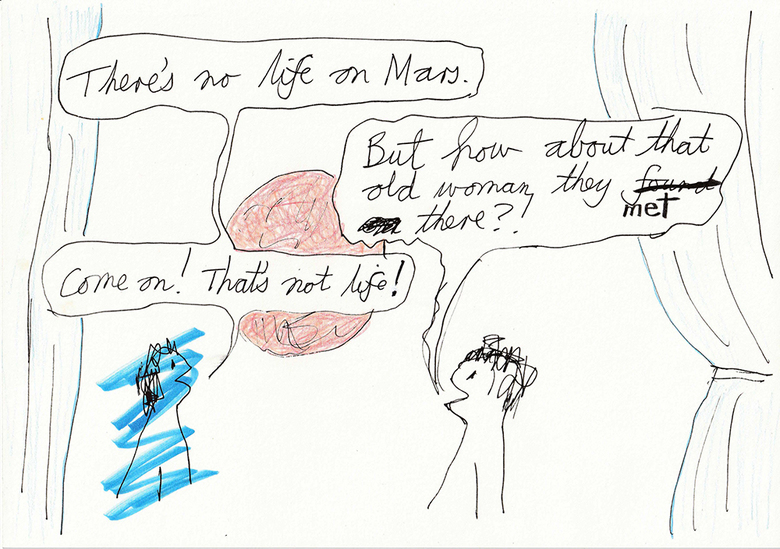 There's no life on Mars.
But how about that
old woman, they found
met
there?!
Come on! That's not life!